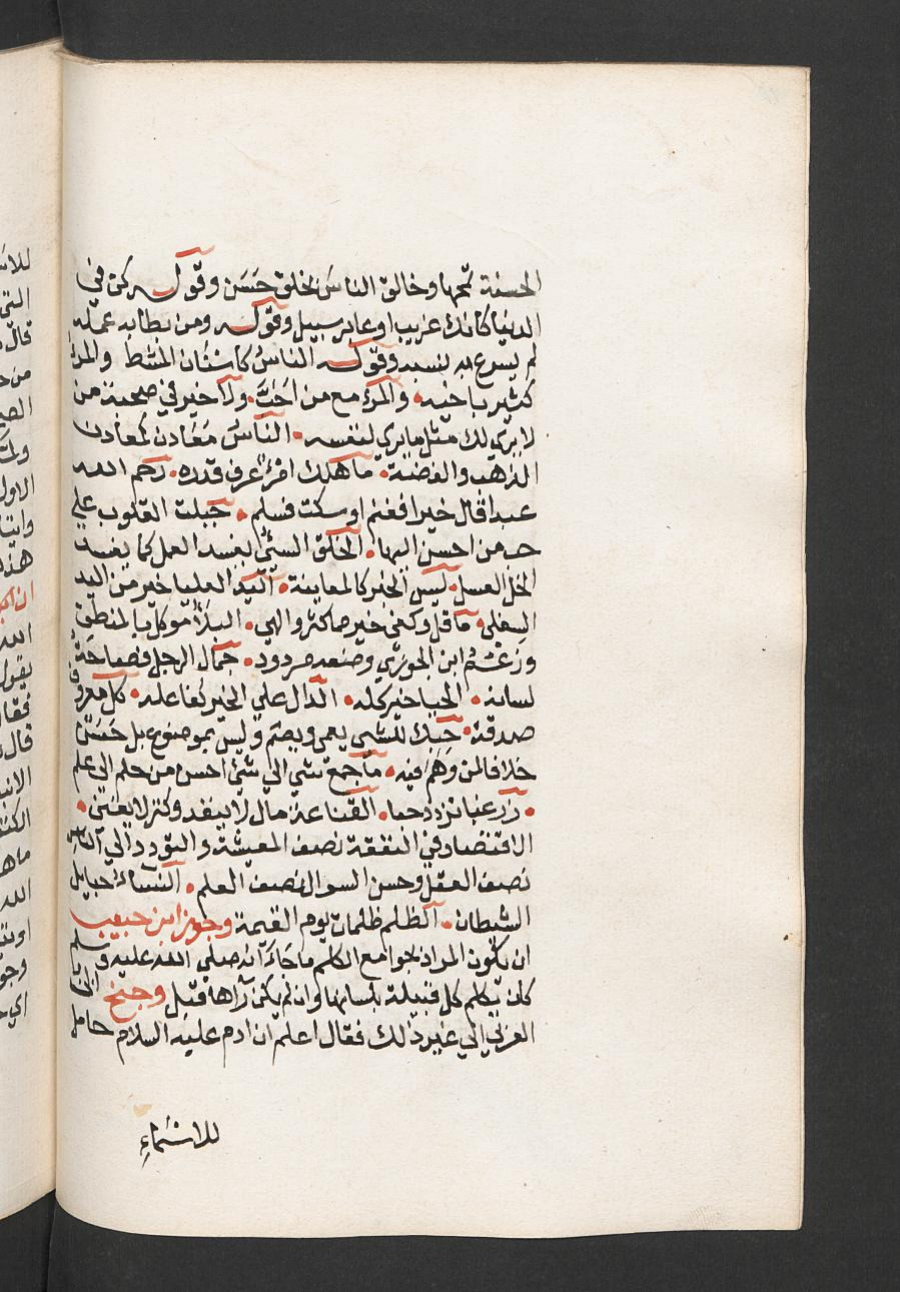 الحسنة تمحها وخالق الناسَ بخلق حَسَن وقوله كن في
الدنيا كانك غريب او عابر سبيل وقوله ومن ابطا به عمله
لم يسرع به نسبه وقوله الناسُ كاسنان المشط والمرء
كثير باخيه والمرء مع من احبَّ ولا خير في صحبة من
لا يري لك مثل ما يري لنفسه الناسُ مَعَادن كمعادن
الذهب والفضة ما هلك امرؤ عرف قدره رحم الله
عبدا قال خيرا فغنم او سكت فسلم جبلت القلوب علي
حب من احسن اليها الخلق السيّئ يفسد العمل كما يفسد
الخل العسل ليس الخبر كالمعاينة اليَد العليا خير من اليد
السفلي ما قل وكفي خير مما كثر والهي البلآء موكل بالمنطق
وزعْمُ ابن الجوزيّ وضعه مردود جمال الرجل فصاحَةُ
لسانه الحيا خير كله الدال علي الخير كفاعله كل معروف
صدقة حبك للشي يعمي ويصم وليس بموضوع بل حَسَنٌ
خلافا لمن وهَم فيه ما جمع شي الي شئ احسن من حلم الي علم
زر غبا تزدد حبا القناعة مال لا ينفد وكنز لا يفني
الاقتصاد في النفقة نصف المعيشة والتودد الي الناس
نصف العقل وحسن السوال نصف العلم النساء حبايل
الشيطان الظلم ظلمات يوم القيمة وجوز ابن حبيب
ان يكون المراد بجوامع الكلم ما جَاءَ انه صلي الله عليه وسلم
كان يكلم كل قبيلة بلسانها وان لم يكن رآها قبل وجنح
العربي الي غير ذلك فقال اعلم ان ادم عليه السلام حامل
للاسْمَاءِ